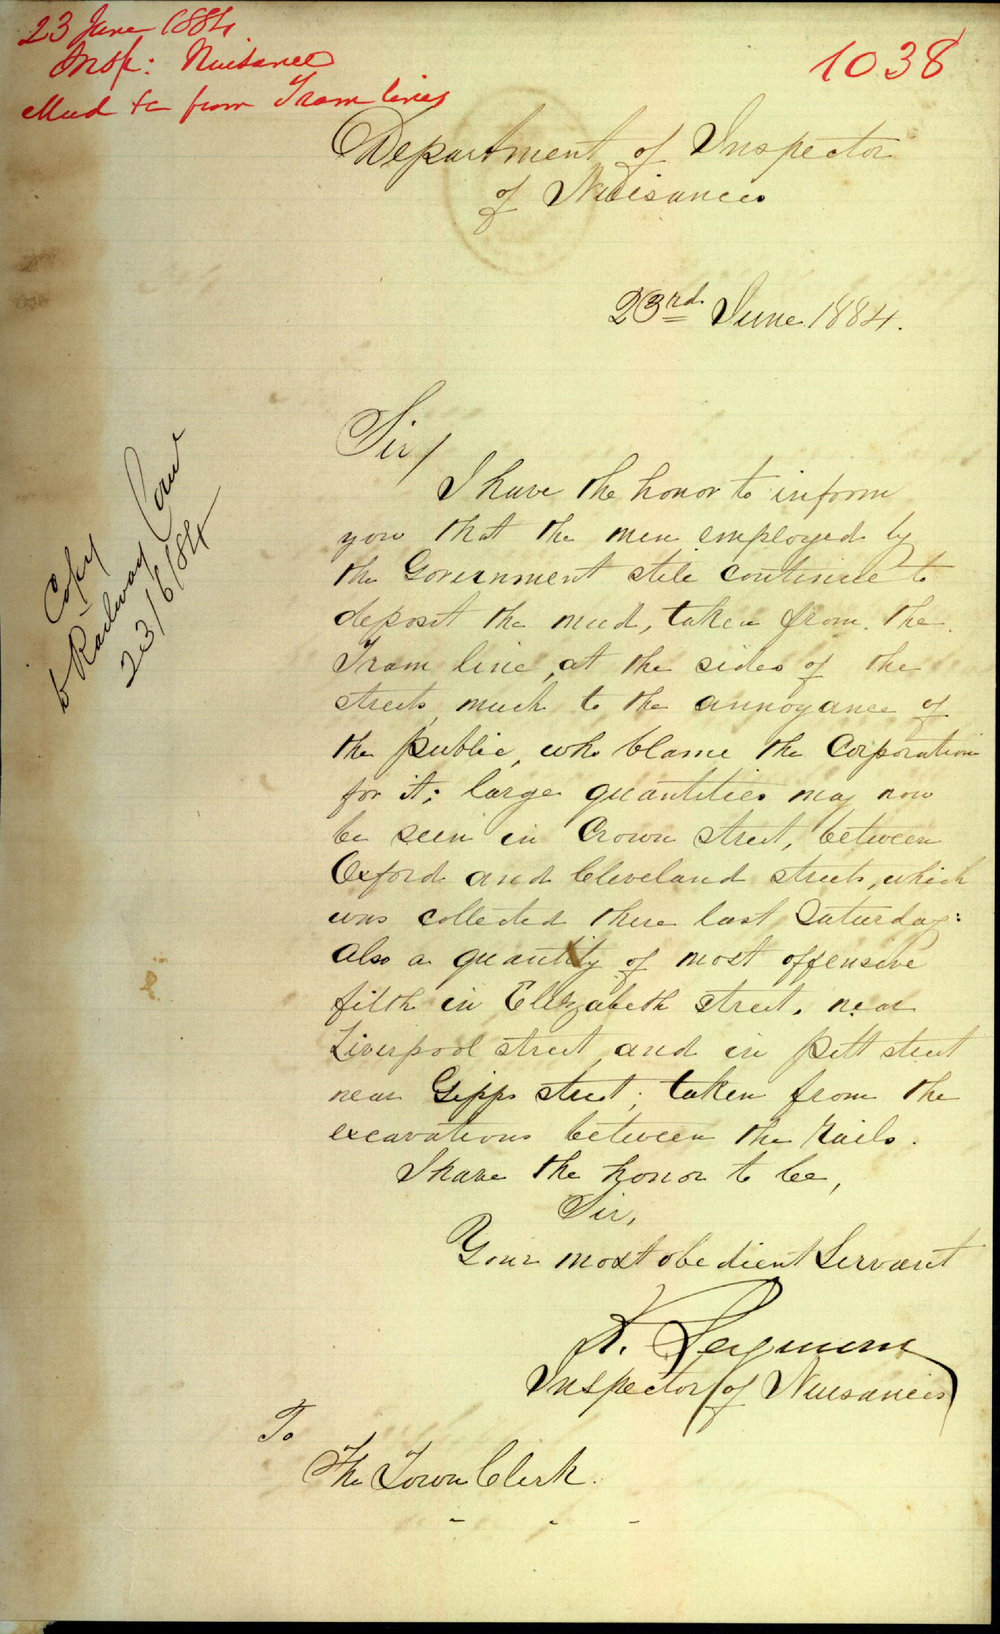 23 June 1884
Insp: Nuisances
Mud &c from Tram lines
1038
Department of Inspector
of Nuisances
23rd June 1884.
Sir/
I have the honor to inform
you that the men employed by
the Government still continue to
deposit the mud, taken from the
Tram line, at the sides of the
streets, much to the annoyance of
the public, who blame the Corporation
for it; large quantities may now
be seen in Crown street, between
Oxford and Cleveland streets, which
was collected there last Saturday:
also a quantity of most offensive
filth in Elizabeth street, near
Liverpool street, and in Pitt street
near Gipps street; taken from the
excavations between the Rails.
I have the honor to be,
Sir,
Your most obedient Servant
R. Seymour
Inspector of Nuisances
To
The Town Clerk.
Copy
to Railway Com
23/6/84